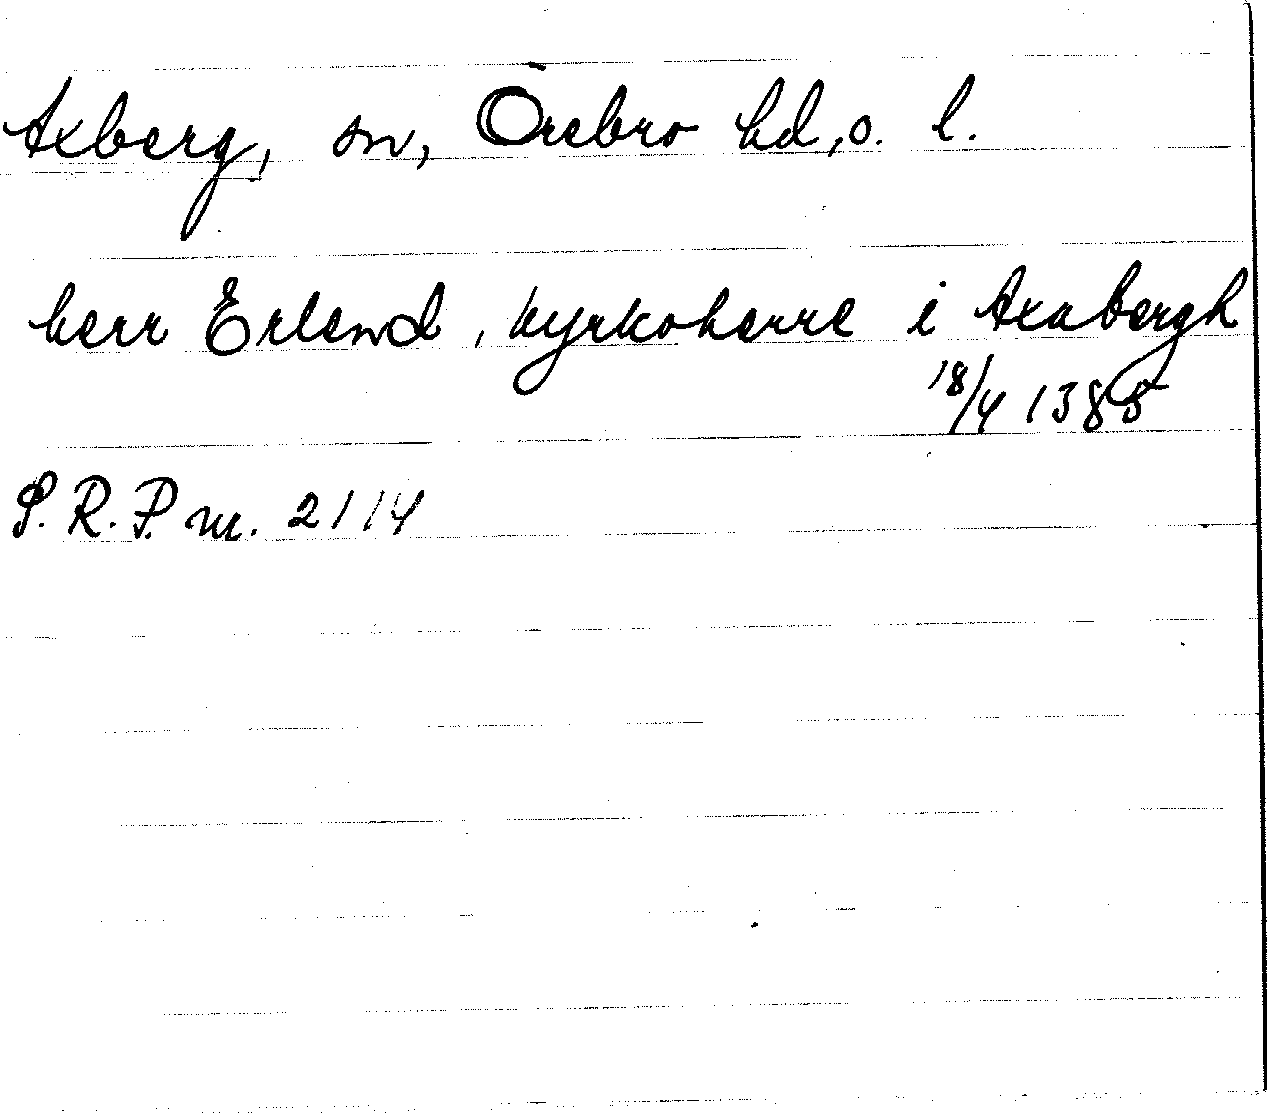 Axberg, sn, Örebro hd, o. l.
herr Erlend, kyrkoherre i Axabergh
18/4 1385
S. R. P. nr. 2114